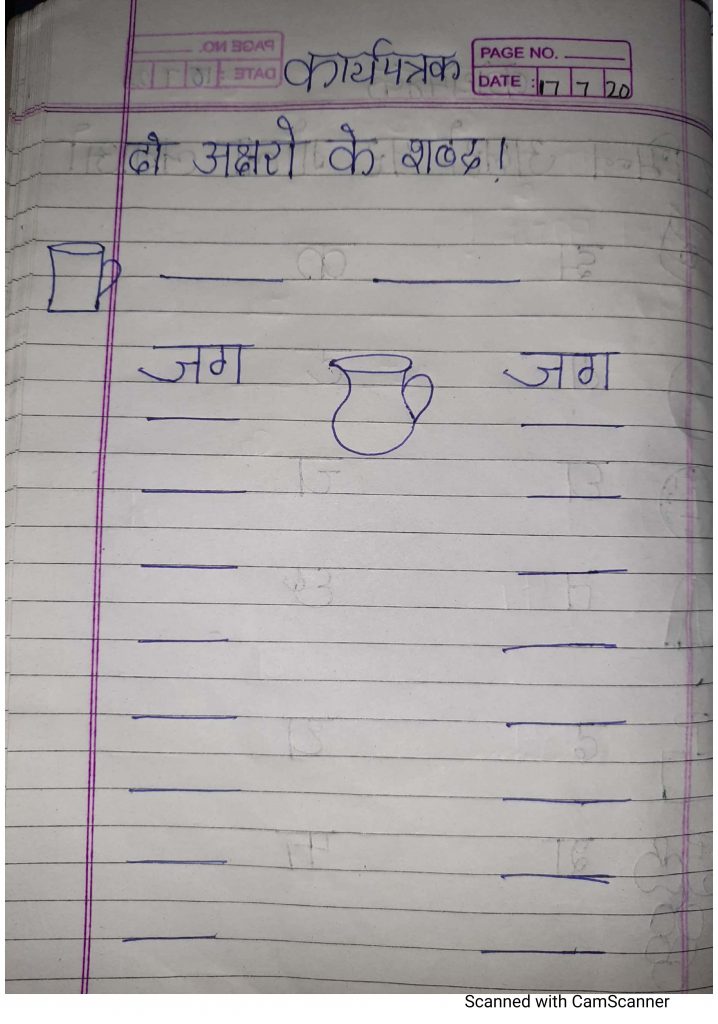 कार्यपत्रक
PAGE NO.
DATE : 17 7 20
दो अक्षरो के शब्द।
जग जग
Scanned with CamScanner